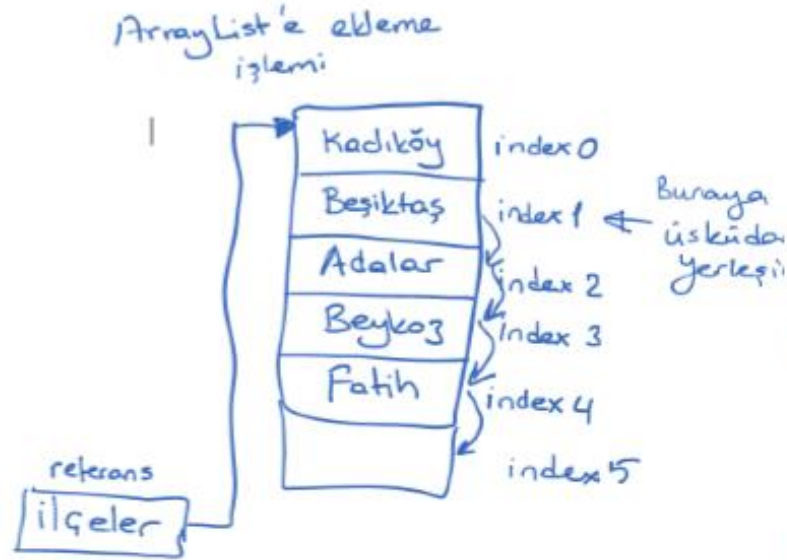 ArrayList'e ekleme
işlemi
Kadıköy
index 0
Beşiktaş
index 1
Buraya
üsküda
yerleşi
Adalar
index 2
Beykoz
index 3
Fatih
index 4
index 5
referans
ilçeler